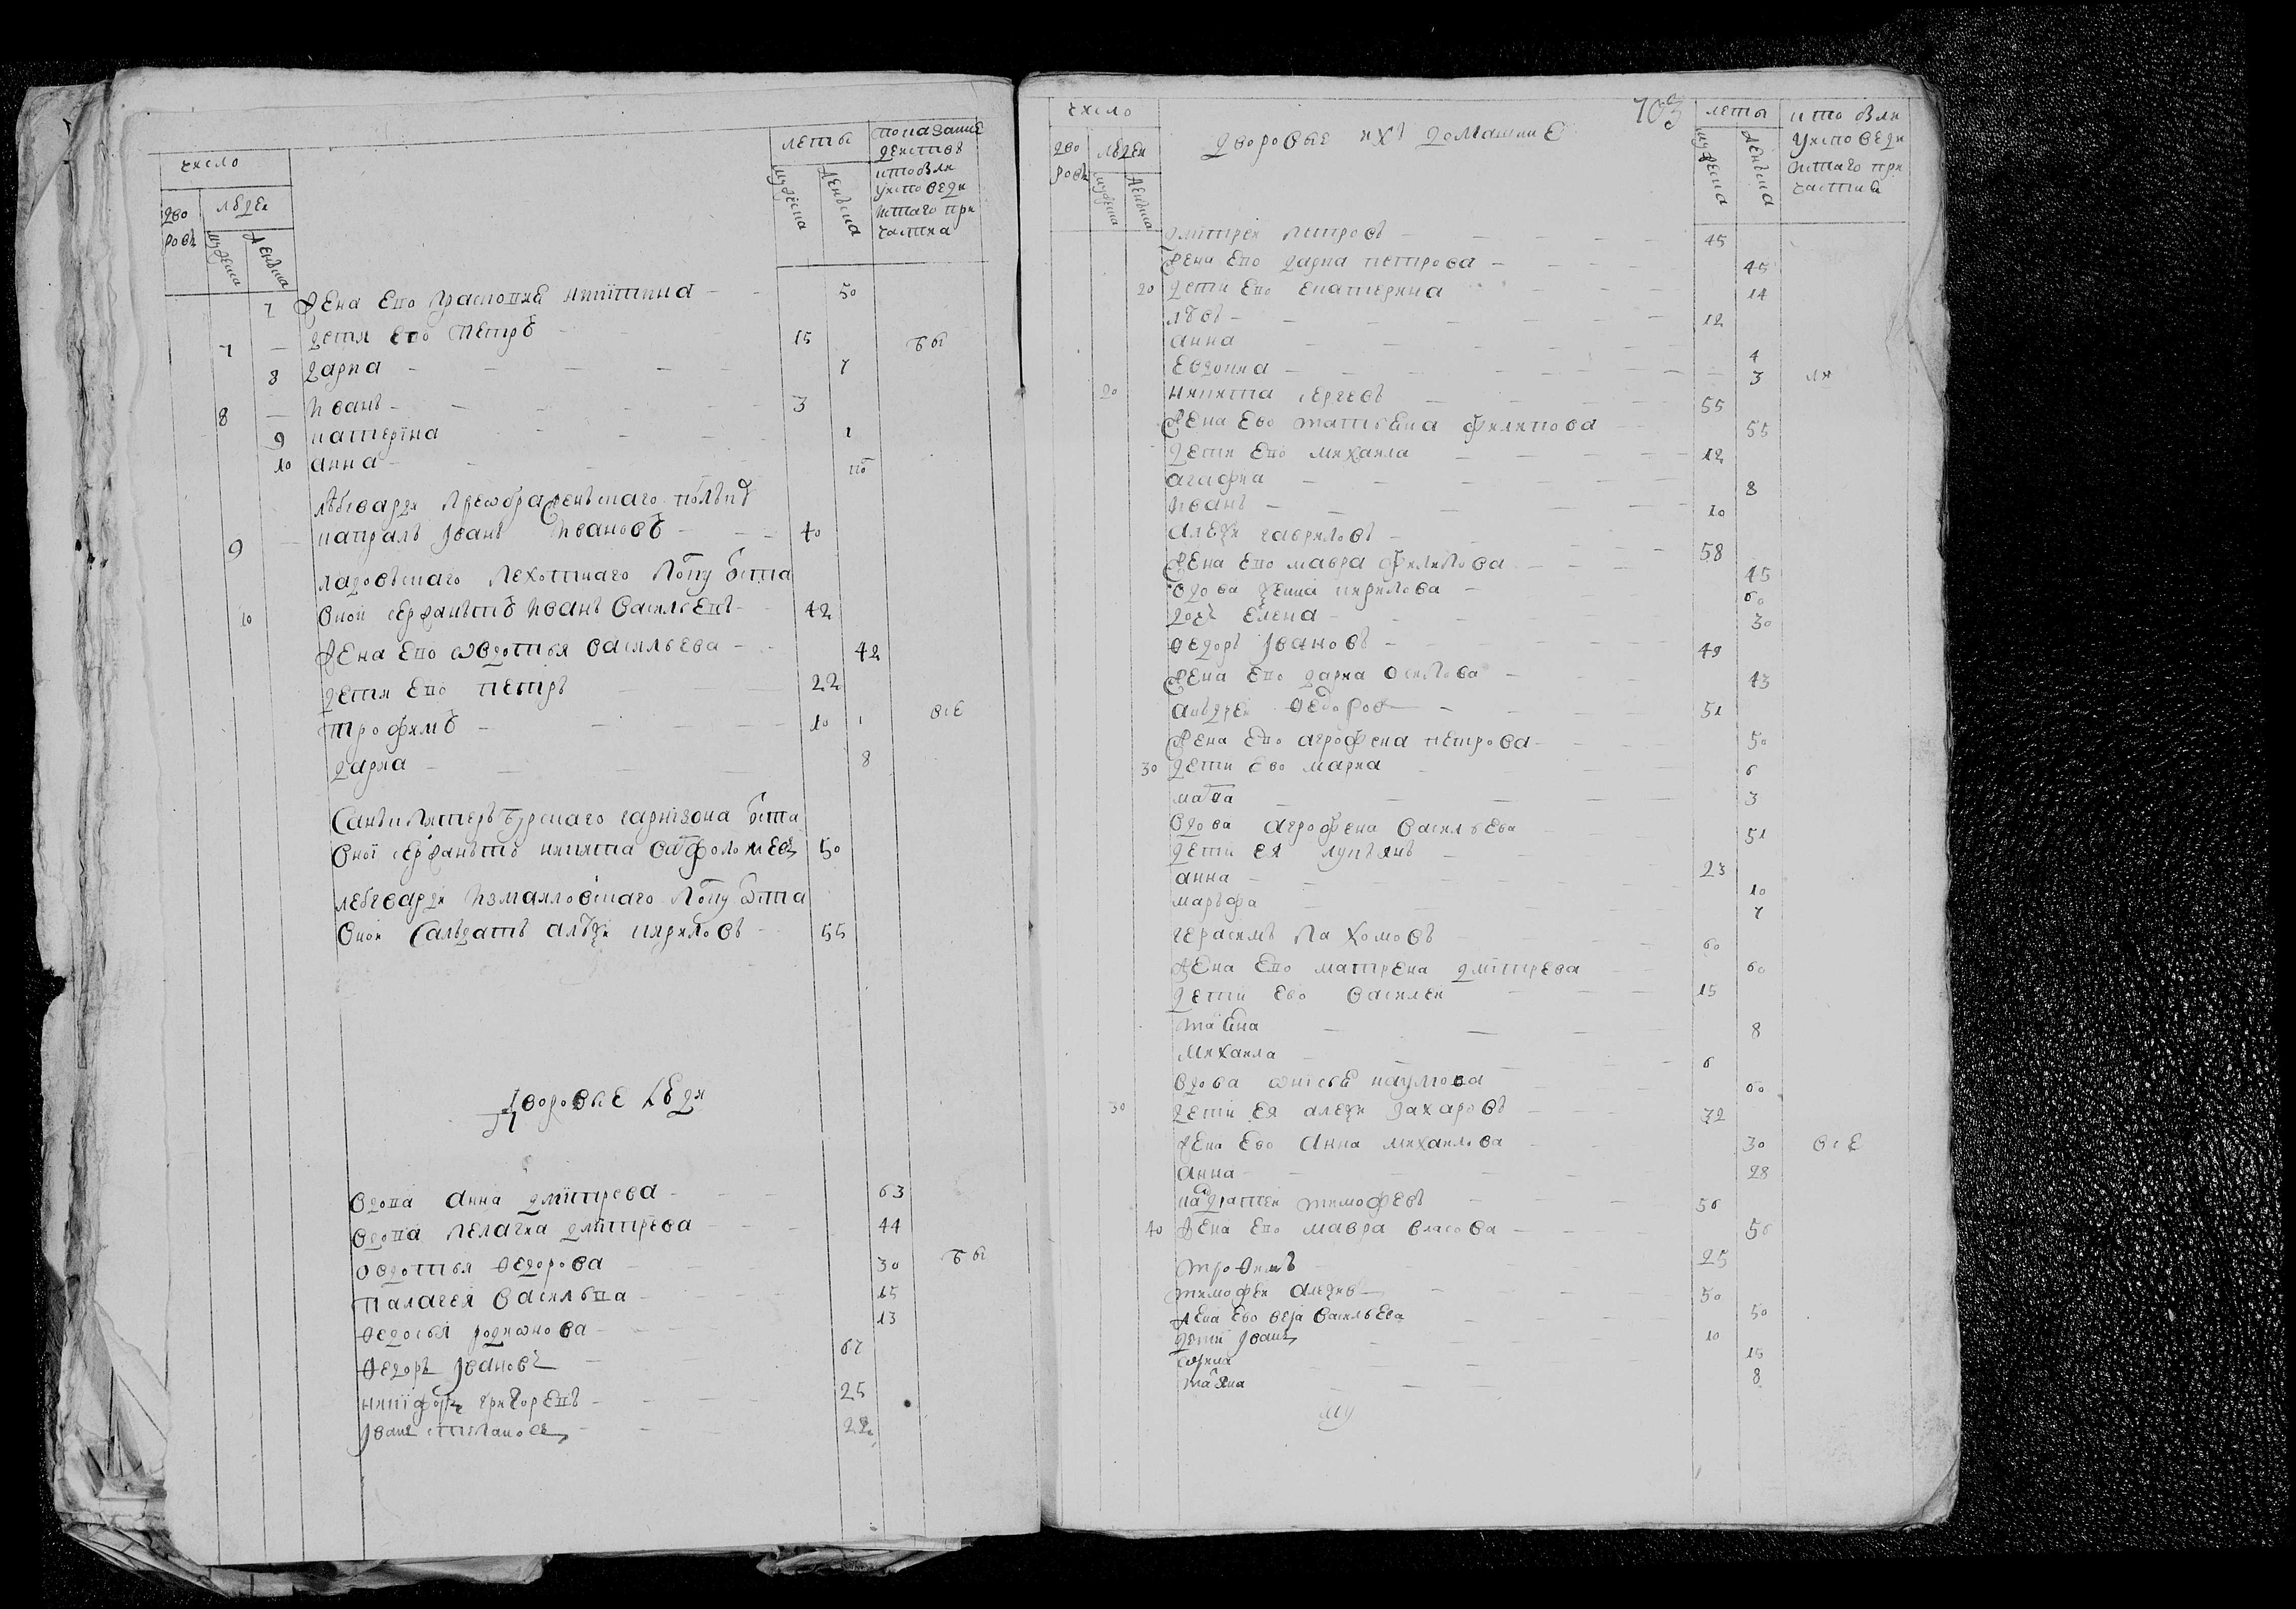 число
дво
ровъ
людеи
мужеска
женьска
леты
мужеска
женьска
показание
деиства
кто был
у исповеди
и стаго при
частиа
7 жена ево прасковия никитина 50
7 дети ево петръ 15 бы
8 дариа 7
8 иванъ 3
9 катерiна 1
10 анна
леибгвардии преображеньскаго полку
9 капралъ иванъ ивановъ 40
ладовскаго пехотнаго полку
10 оной сержантъ иванъ васильевъ 42
жена ево авдотья васильева 42
дети ево петръ 22
трофимъ 10 все
дариа 8
санктпитербурскаго гарнiзона
оноi сержантъ никита варфоломеевъ 50
леибгвардии измаиловскаго полку
оной салдатъ кириловъ 55
дворовые люди
вдова анна дмитрева 63
вдова пелагиа дмитрева 44
овдотья федорова 30 бы
палагея васильева 15
федосья родионова 13
федоръ ивановъ 67
никiфоръ григоревъ 25
иванъ степановъ 22
103
число
дво
ровъ
людеи
мужеска
женьска
дворовые ихъ домашние
леты
мужеска
женьска
кто был
у исповеди
и стаго при
частиа
дмитреи петровъ 45
жена ево дариа петрова 45
20 дети ево екатерина 14
левъ 12
анна 4
евдокиа 3 ли
20 никита сергеевъ 55
жена ево татиана филипова 55
дети ево михаила 12
агафиа 8
иванъ 10
алеѯи гавриловъ 58
жена ево мавра филипова 45
вдова кирилова 60
дочь елена 30
федоръ ивановъ 49
жена ево дариа осипова 43
андреи федоров 51
жена ево агрофена петрова 50
30 дети ево мариа 6
3
вдова агрофена васильева 51
дети ея лукъянъ 23
анна 10
марьфа 7
герасимъ пахомовъ 60
жена ево матрена дмитрева 60
дети ево василеи 15
8
михаила 6
вдова наумова 60
30 дети ея алеѯи захаровъ 32
жена ево анна михаилова 30 все
анна 28
кадратеи тимофеевъ 56
40 жена ево мавра власова 50
трофимъ 25
тимофеи алеѯеевъ 50
жена ево вера васильева 50
дети иванъ 10
софиа 15
8